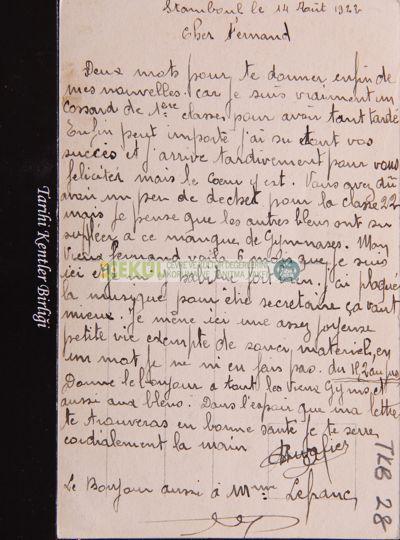 Stamboul le 14 Août 1922
Cher Fernand
Deux mots pour te donner enfin de
mes nouvelles. car je suis vraiment un
cossard de 1ère classe pour avoir tant tardé
Enfin peut importe j'ai su tout vos
succès et j'arrive tardivement pour vous
féliciter mais le coeur y est. Vous avez dû
avoir un peu de dechet pour la classe 22
mais je pense que les autres bleus ont su
suppléer à ce manque de Gymnases. Mon
vieux Fernand voilà 6 mois que je suis
ici et
j'ai plaqué
la musique pour être secretaire ça vaut
mieux. Je mène ici une assez joyeuse
petite vie exempte de soucis matériels, en
un mot je ne m'en fais pas. du 112 au jus
Donne le bonjour à tout les vieux Gyms, et
aussi aux bleus. Dans l'espoir que ma lettre
te trouveras en bonne santé je te serre
cordialement la main
Le Bonjour aussi à Mme Lefranc
Tarihi Kentler Birliği
ÇEKÜL
ÇEVRE VE KÜLTÜR DEĞERLERİNİ
KORUMA VE TANITMA VAKFI
TKB 28